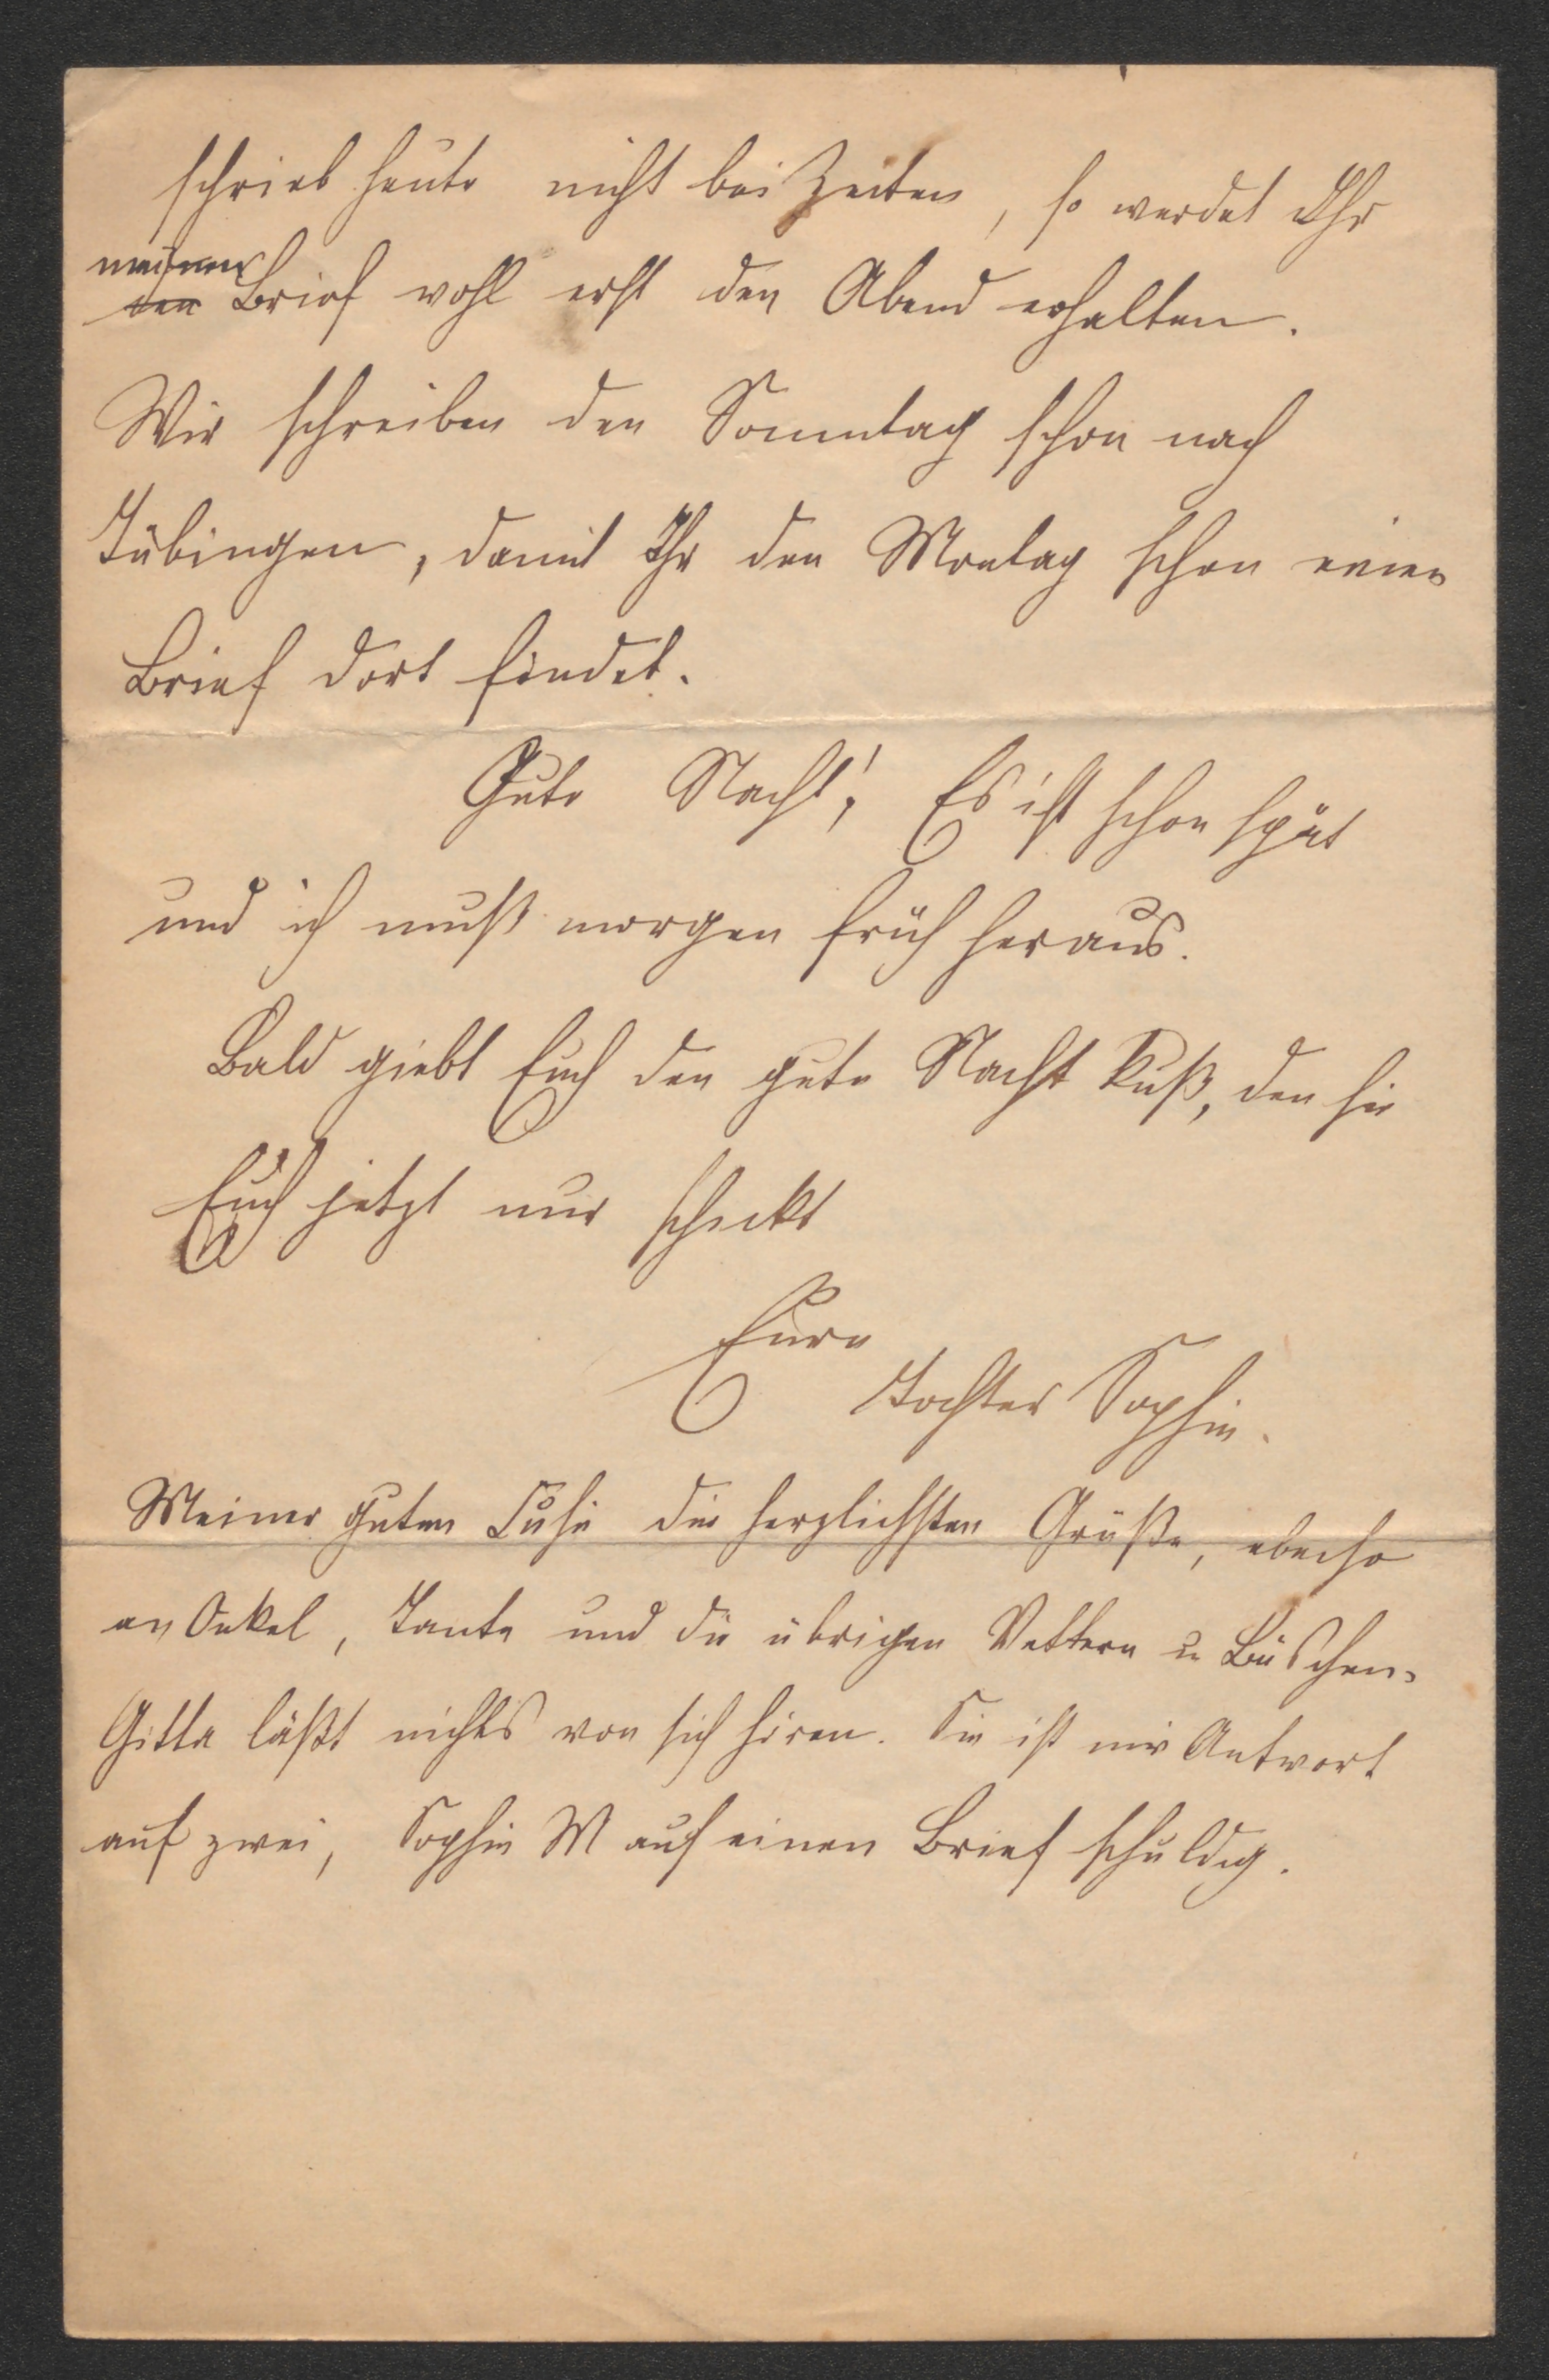 schrieb heute nicht bei Zeiten, so werdet Ihr
meinen
den Brief wohl erst den Abend erhalten.
Wir schreiben den Sonntag schon nach
Tübingen, damit Ihr den Montag schon einen
Brief dort findet.
Gute Nacht! Es ist schon spät
und ich muß morgen früh heraus.
Bald giebt Euch den gute Nacht Kuß, den sie
Euch jetzt nur schickt
Eure
Tochter Sophie.
Meiner guten die herzlichsten Grüße, ebenso
an Onkel, Tante und die übrigen Vettern u Bäschen.
Gitta läßt nichts von sich hören. Sie ist mir Antwort
auf zwei, Sophie M auf einen Brief schuldig.